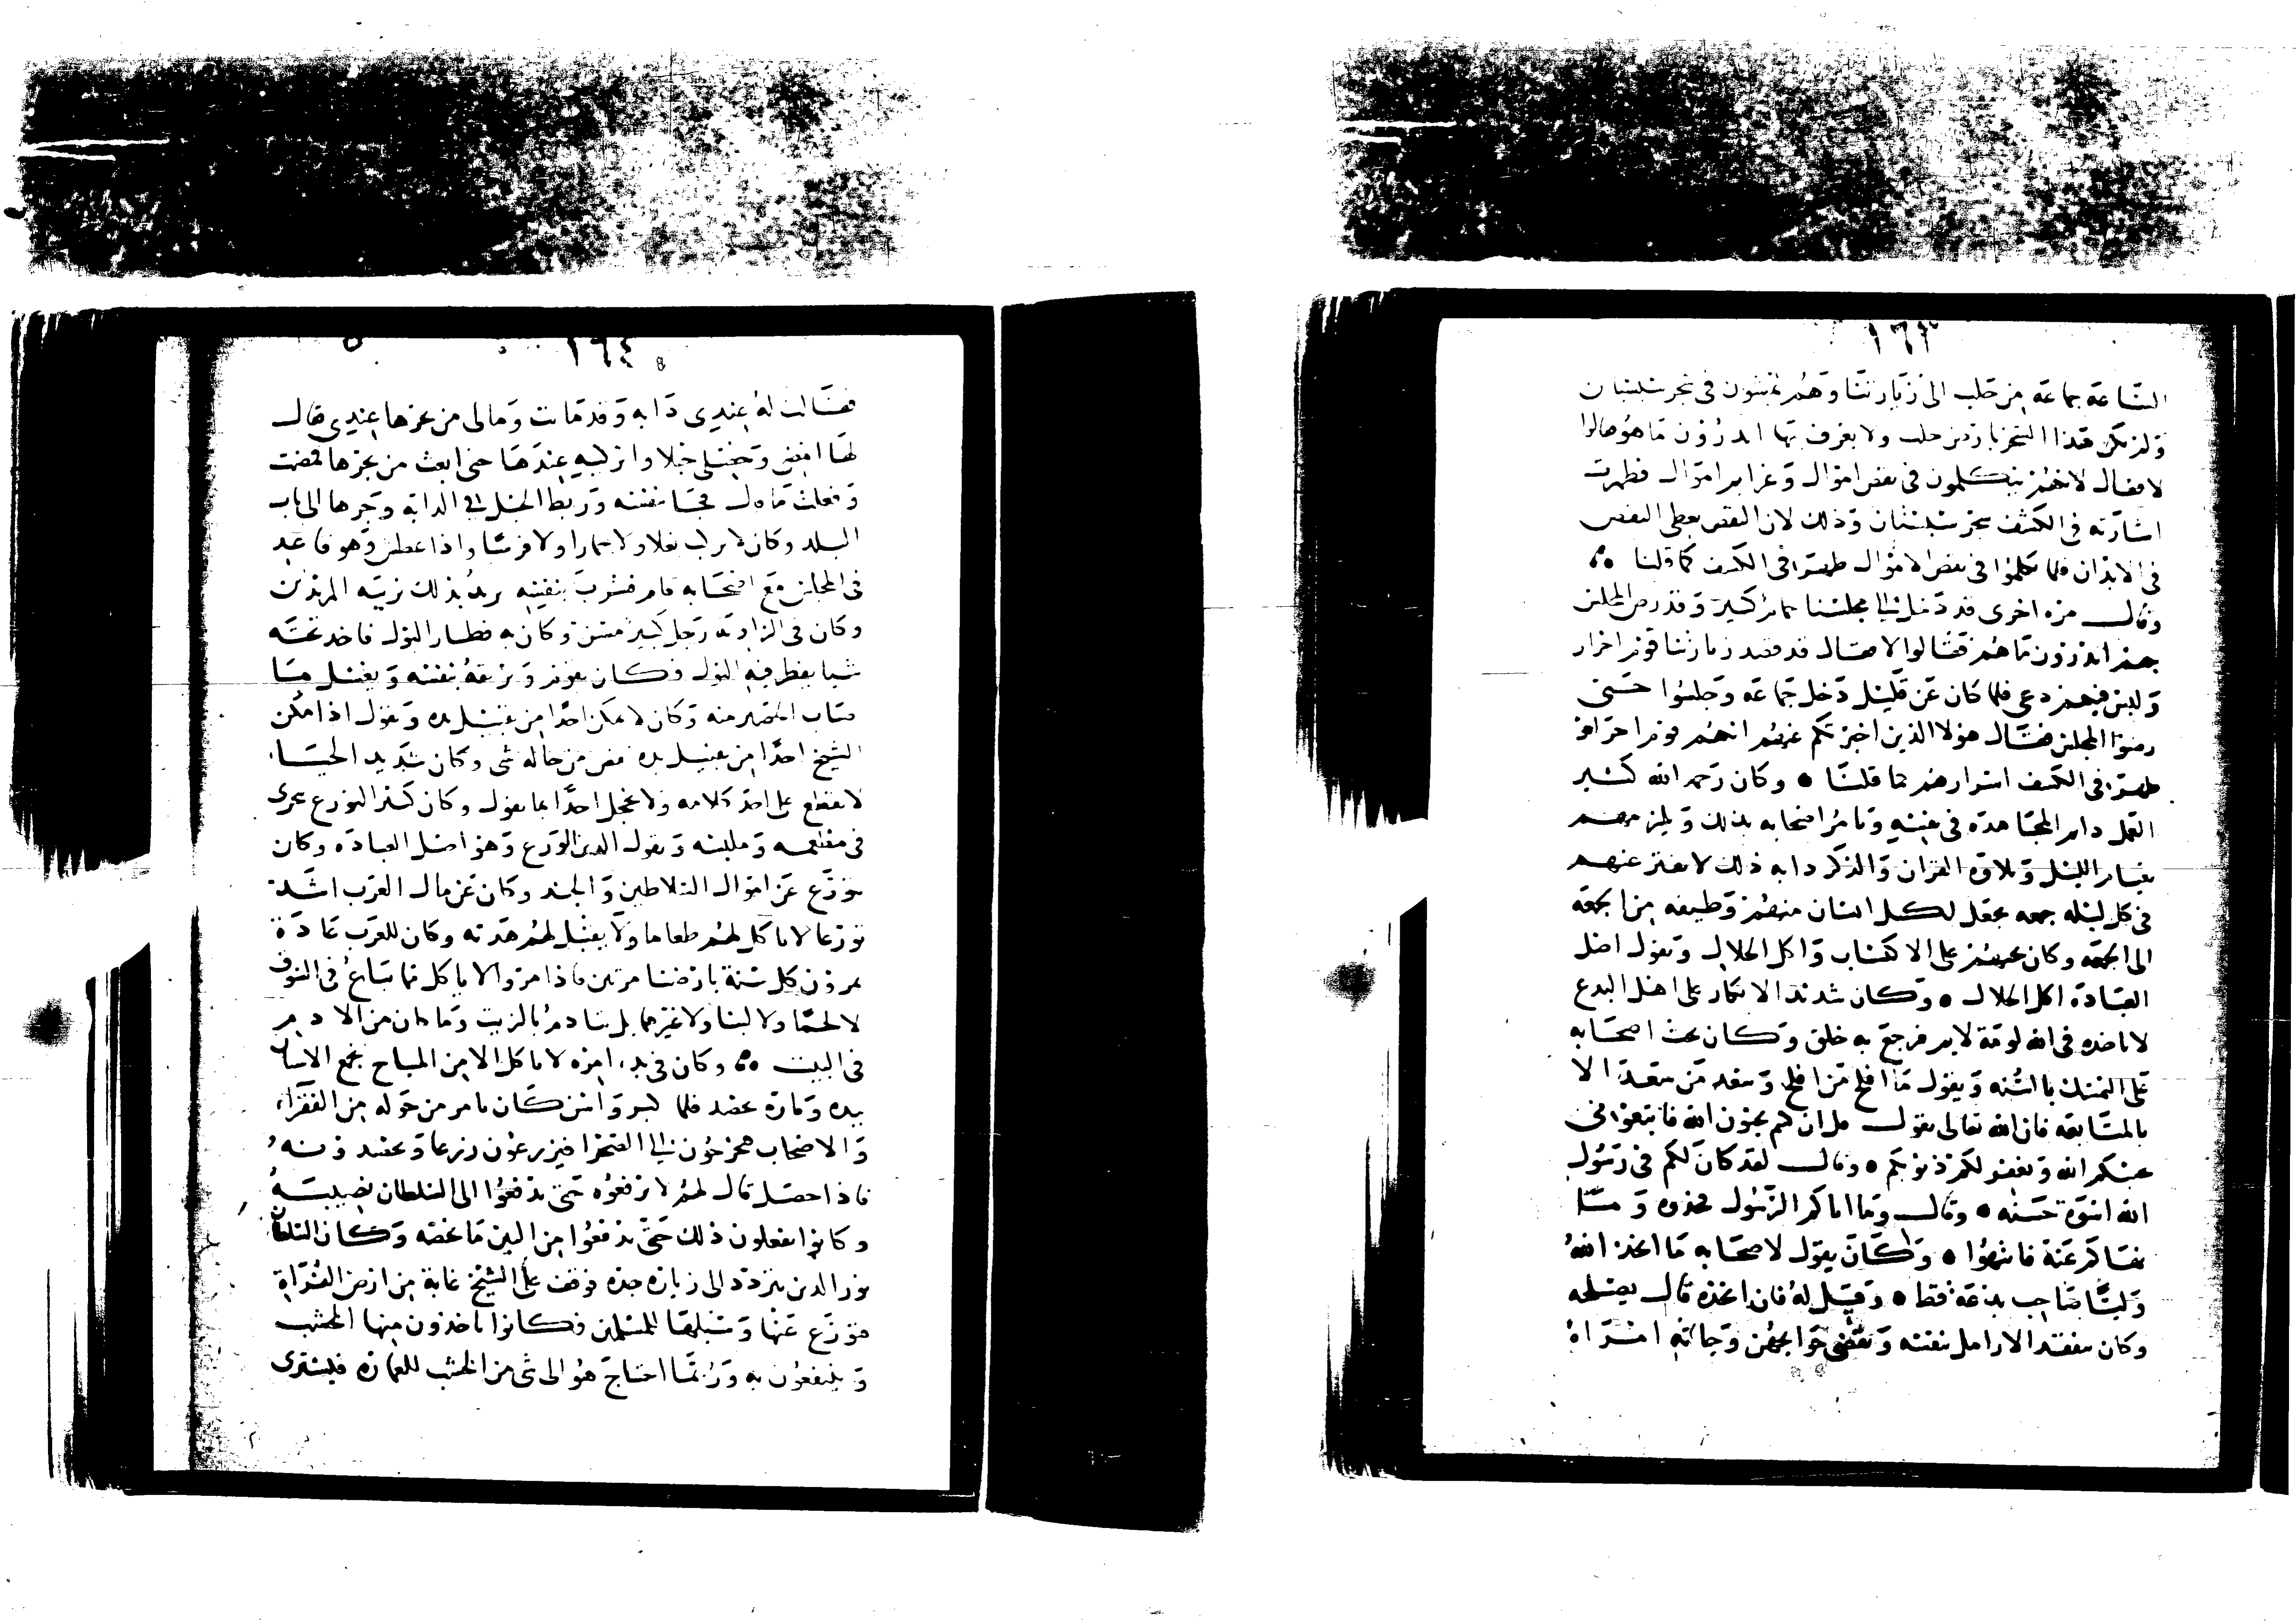 ١٦٣
الساعة جماعة من حلب الى زيارتنا وهم يمشون في شجر
ولم يكن هذا الشجر بارض حلب ولا يعرف بها اتدرون ما هو قالوا
لا فقال لانهم يتكلمون في بعض اموال وغرايم اموال فظهرت
اشارته في الكشف شجر وذلك لان البعض يعطي البعض
في الابدان فلما تكلموا في بعض الاموال ظهر في الكشف كما قلنا
وقال مرة اخرى قد دخل الى مجلسنا كبير وقد رص المجلس
بهم اتدرون ما هم فقالوا لا فقال قد قصد زيارتنا قوم احرار
وليس فيهم دعي فلما كان عن قليل دخل جماعة وجلسوا حتى
رصوا المجلس فقال هولا الذين اخبرتكم عنهم انهم قوم احرار
ظهر في الكشف اسرارهم بما قلنا وكان رحمه الله كثير
العمل دايم المجاهدة في نفسه ويامر اصحابه بذلك ويلزمهم
بقيام الليل وتلاوة القران والذكر دابه ذلك لا يفتر عنهم
في كل ليلة جمعه يجعل لكل انسان منهم وظيفه من الجمعة
الى الجمعة وكان يحرضهم على الاكتساب واكل الحلال ويقول اصل
العبادة اكل الحلال وكان شديد الانكار على اهل البدع
لا تاخذه في الله لومة لايم فرجع به خلق وكان يحث اصحابه
على التمسك بالسنه ويقول ما افلح من افلح وسعد من سعد الا
بالمتابعة فان الله تعالى يقول قل ان كنتم تحبون الله فاتبعوني
يحببكم الله ويغفر لكم ذنوبكم وقال لقد كان لكم في رسول
الله اسوة حسنه وقال وما اتاكم الرسول فخذوه وما
نهاكم عنه فانتهوا وكان يقول لاصحابه ما اتخذ الله
وليا صاحب بدعة فقط وقيل له فان اتخذه قال يصلحه
وكان يتفقد الارامل بنفسه ويقضي حوايجهن وجاته امراة
١٦٤
فقالت له عندي دابه وقد ماتت وما لي من يجرها عندي قال
لها امضي وحصلي حبلا واتركيه عندها حتى ابعث من يجرها فمضت
وفعلت ما قال فجا بنفسه وربط الحبل في الدابة وجرها الى باب
البلد وكان لا يركب بغلا ولا حمارا ولا فرسا واذا عطش وهو قاعد
في المجلس مع اصحابه قام فشرب بنفسه يريد بذلك تربية المريدين
وكان في الزاوية رجل كبير مسن وكان به قطار البول فاخذ تحته
شيا يقطر فيه البول فكان يقوم ويرفعه بنفسه ويغسل ما
منه وكان لا يمكن احدا من تقبيل يده ويقول اذا مكن
الشيخ احدا من تقبيل يده نقص من حاله شي وكان شديد الحيا
لا يقطع على احد كلامه ولا يخجل احدا بما يقول وكان كثير التورع يتحرى
في مطعمه وملبسه ويقول الدين الورع وهو اصل العبادة وكان
يتورع عن اموال السلاطين والجند وكان عن مال العرب اشد
تورعا لا ياكل لهم طعاما ولا يقبل لهم هدية وكان للعرب عادة
يمرون كل سنة بارضنا مرتين فاذا مروا لا ياكل مما يباع في السوق
لا لحما ولا لبنا ولا غيرهما بل يتادم بالزيت وما كان من الادم
في البيت وكان في بدء امره لا ياكل الا من المباح يجمع
بيده وتارة يحصد فلما كبر واسن كان يامر من حوله من الفقراء
والاصحاب فيخرجون الى الصحرا فيزرعون زرعا ويحصدونه
فاذا حصل قال لهم لا ترفعوه حتى تدفعوا الى السلطان نصيبه
وكانوا يفعلون ذلك حتى يدفعوا من التبن ما يخصه وكان السلطان
نور الدين يتردد الى زيارة جده فوقف على الشيخ غابة من ارض الفراة
فتورع عنها وسبلها للمسلمين فكانوا ياخذون منها الخشب
وينتفعون به وربما احتاج هو الى شي من الخشب للعمارة فيشتري